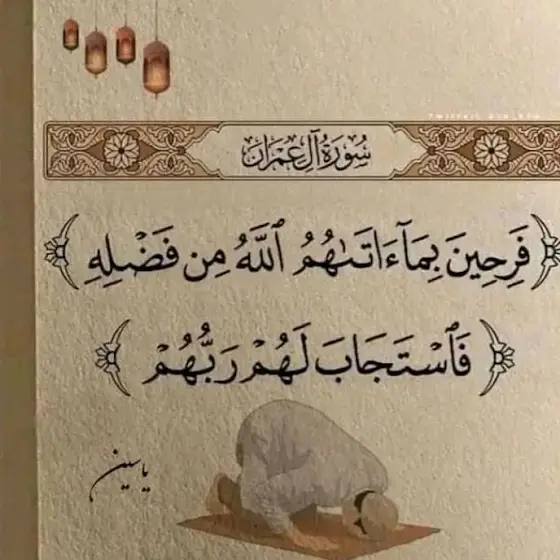 سُورَةُ آلِ عِمْرَانَ
فَرِحِينَ بِمَآ ءَاتَىٰهُمُ ٱللَّهُ مِن فَضْلِهِ
فَٱسْتَجَابَ لَهُمْ رَبُّهُمْ
ياسين